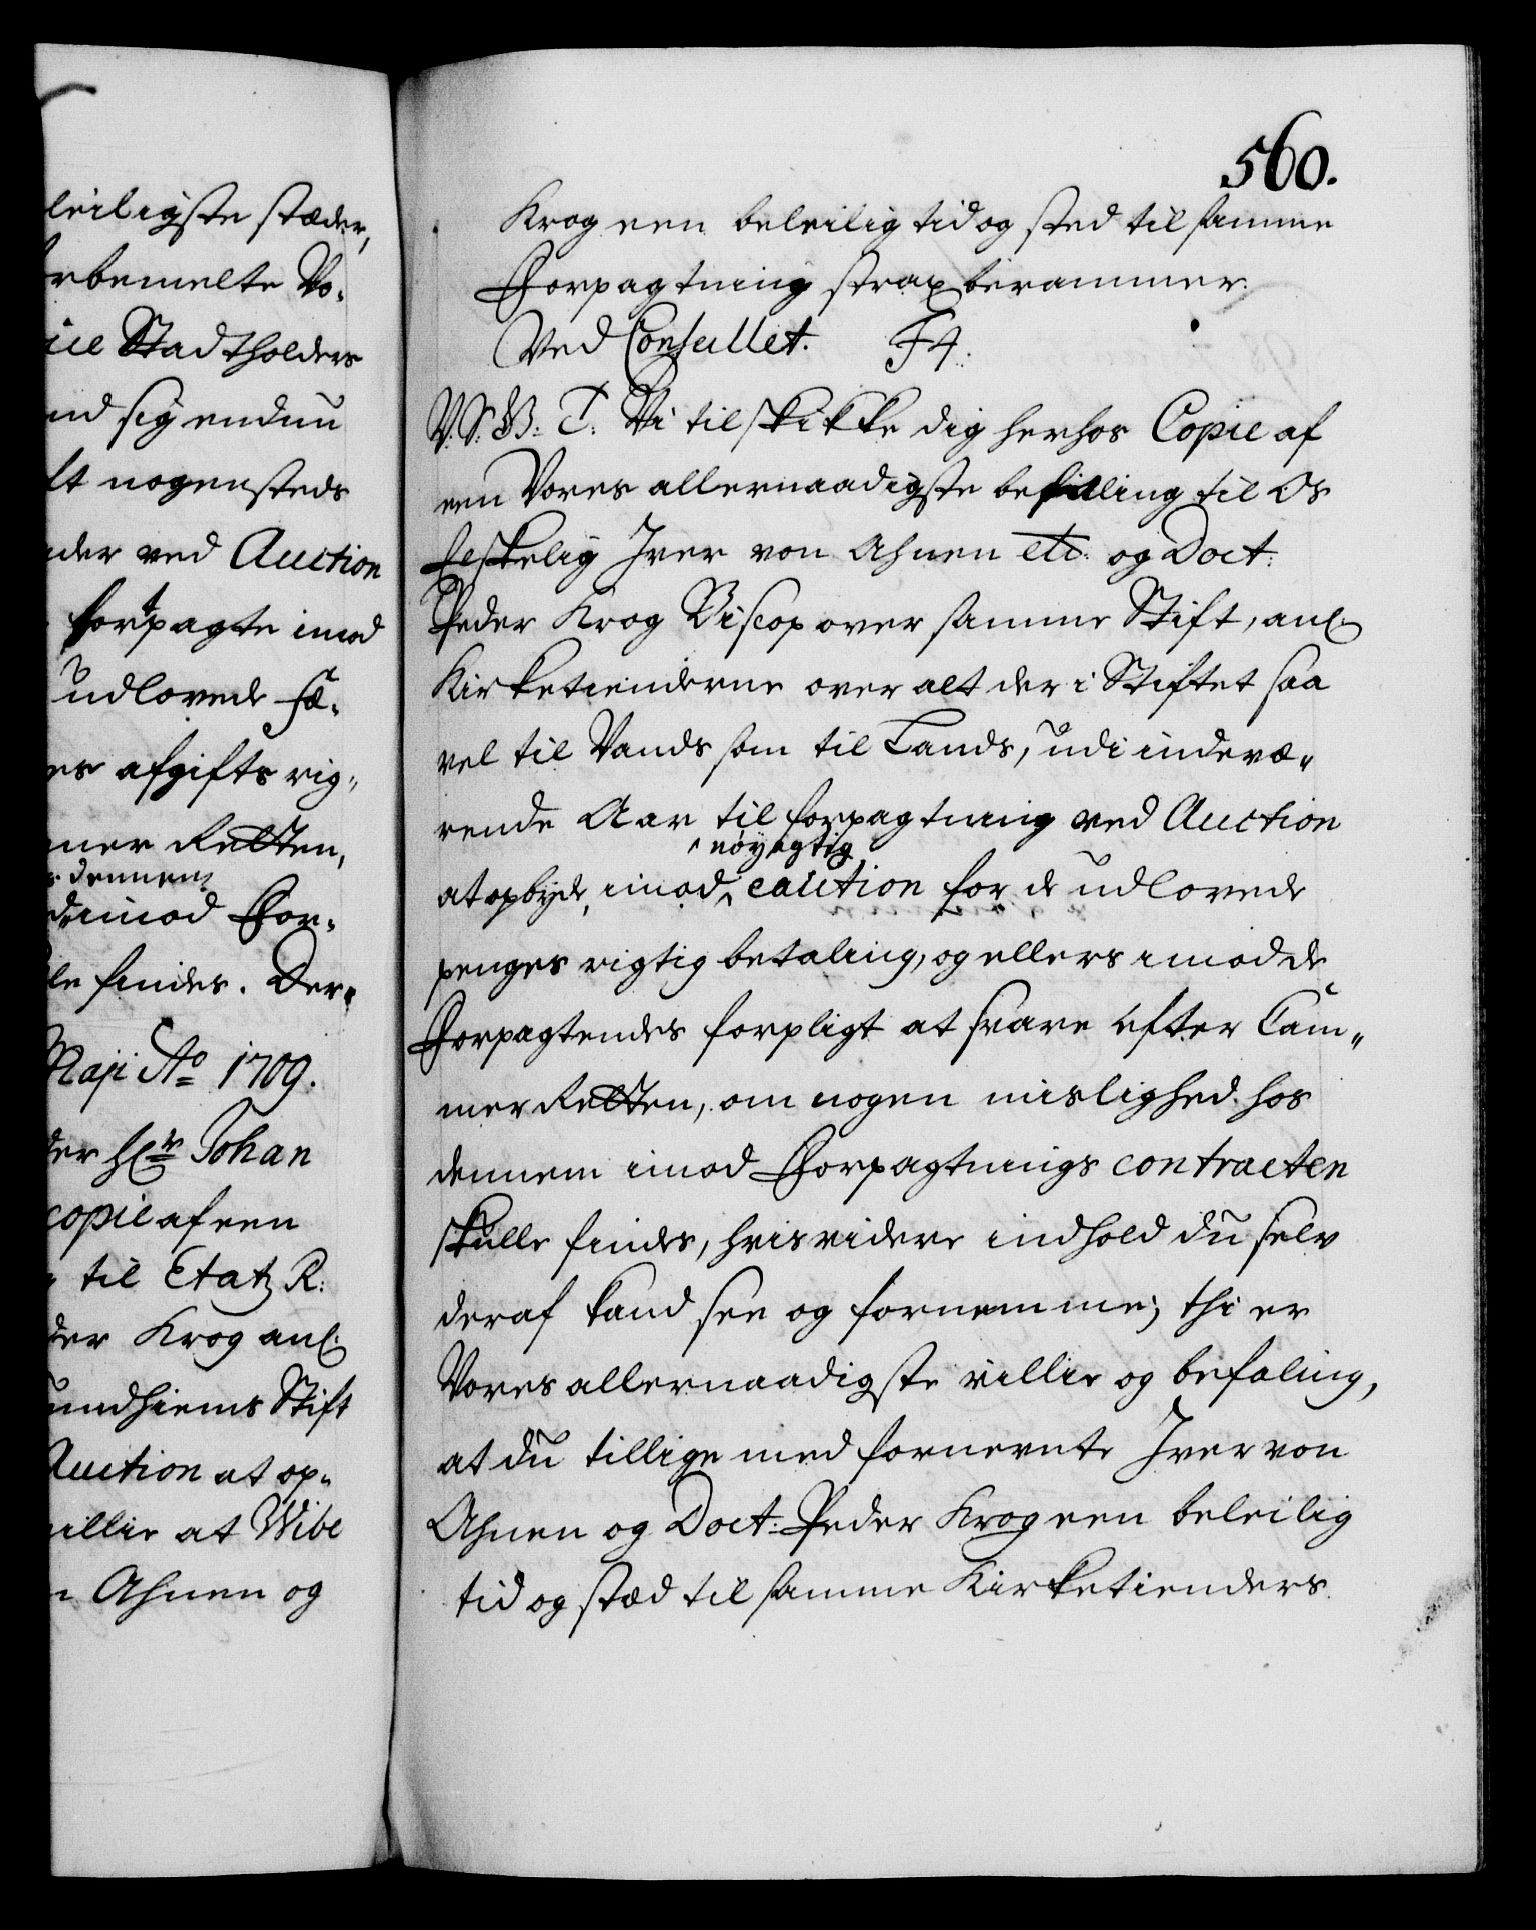 leiligste stæder,
rbemelte Vo-
ice Stadtholders
nd sig enduu
lt nogensteds
der ved Auction
forpagte imod
udlovede Fæ-
es afgifts rig-
mer Retten,
dennem
imod For-
le findes. Der-
Maji Ao 1709.
der Hr Johan
copie af een
til Etatz R:
der Krog anl.
undhiems Stift
Auction at op-
villie at Wibe
n Ahnen og
560.
Krog een beleilig tid og sted til samme
Forpagtning strax berammer.
Ved Conseillet. F4.
V.S.G.T. Vi tilskikke dig herhos Copie af
een Vores allernaadigste befaling til Os
Elskelig Iver von Ahnen etc: og Doct:
Peder Krog Biscop over samme Stift, anl.
Kirketienderne over alt der i Stiftet saa
vel til Vands som til Lands, udi indevæ-
rende Aar til forpagtning ved Auction
nøyagtig
at opbyde, imod caution for de udlovede
penges rigtig betaling, og ellers imod de
Forpagtendes forpligt at svare efter Cam-
mer Retten, om nogen mislighed hos
dennem imod Forpagtnings contracten
skulle findes, hvis videre indhold du selv
deraf kand see og fornemme; thi er
Vores allernaadigste villie og befaling,
at du tillige med fornevnte Iver von
Ahnen og Doct: Peder Krog een beleilig
tid og stæd til samme Kirketienders